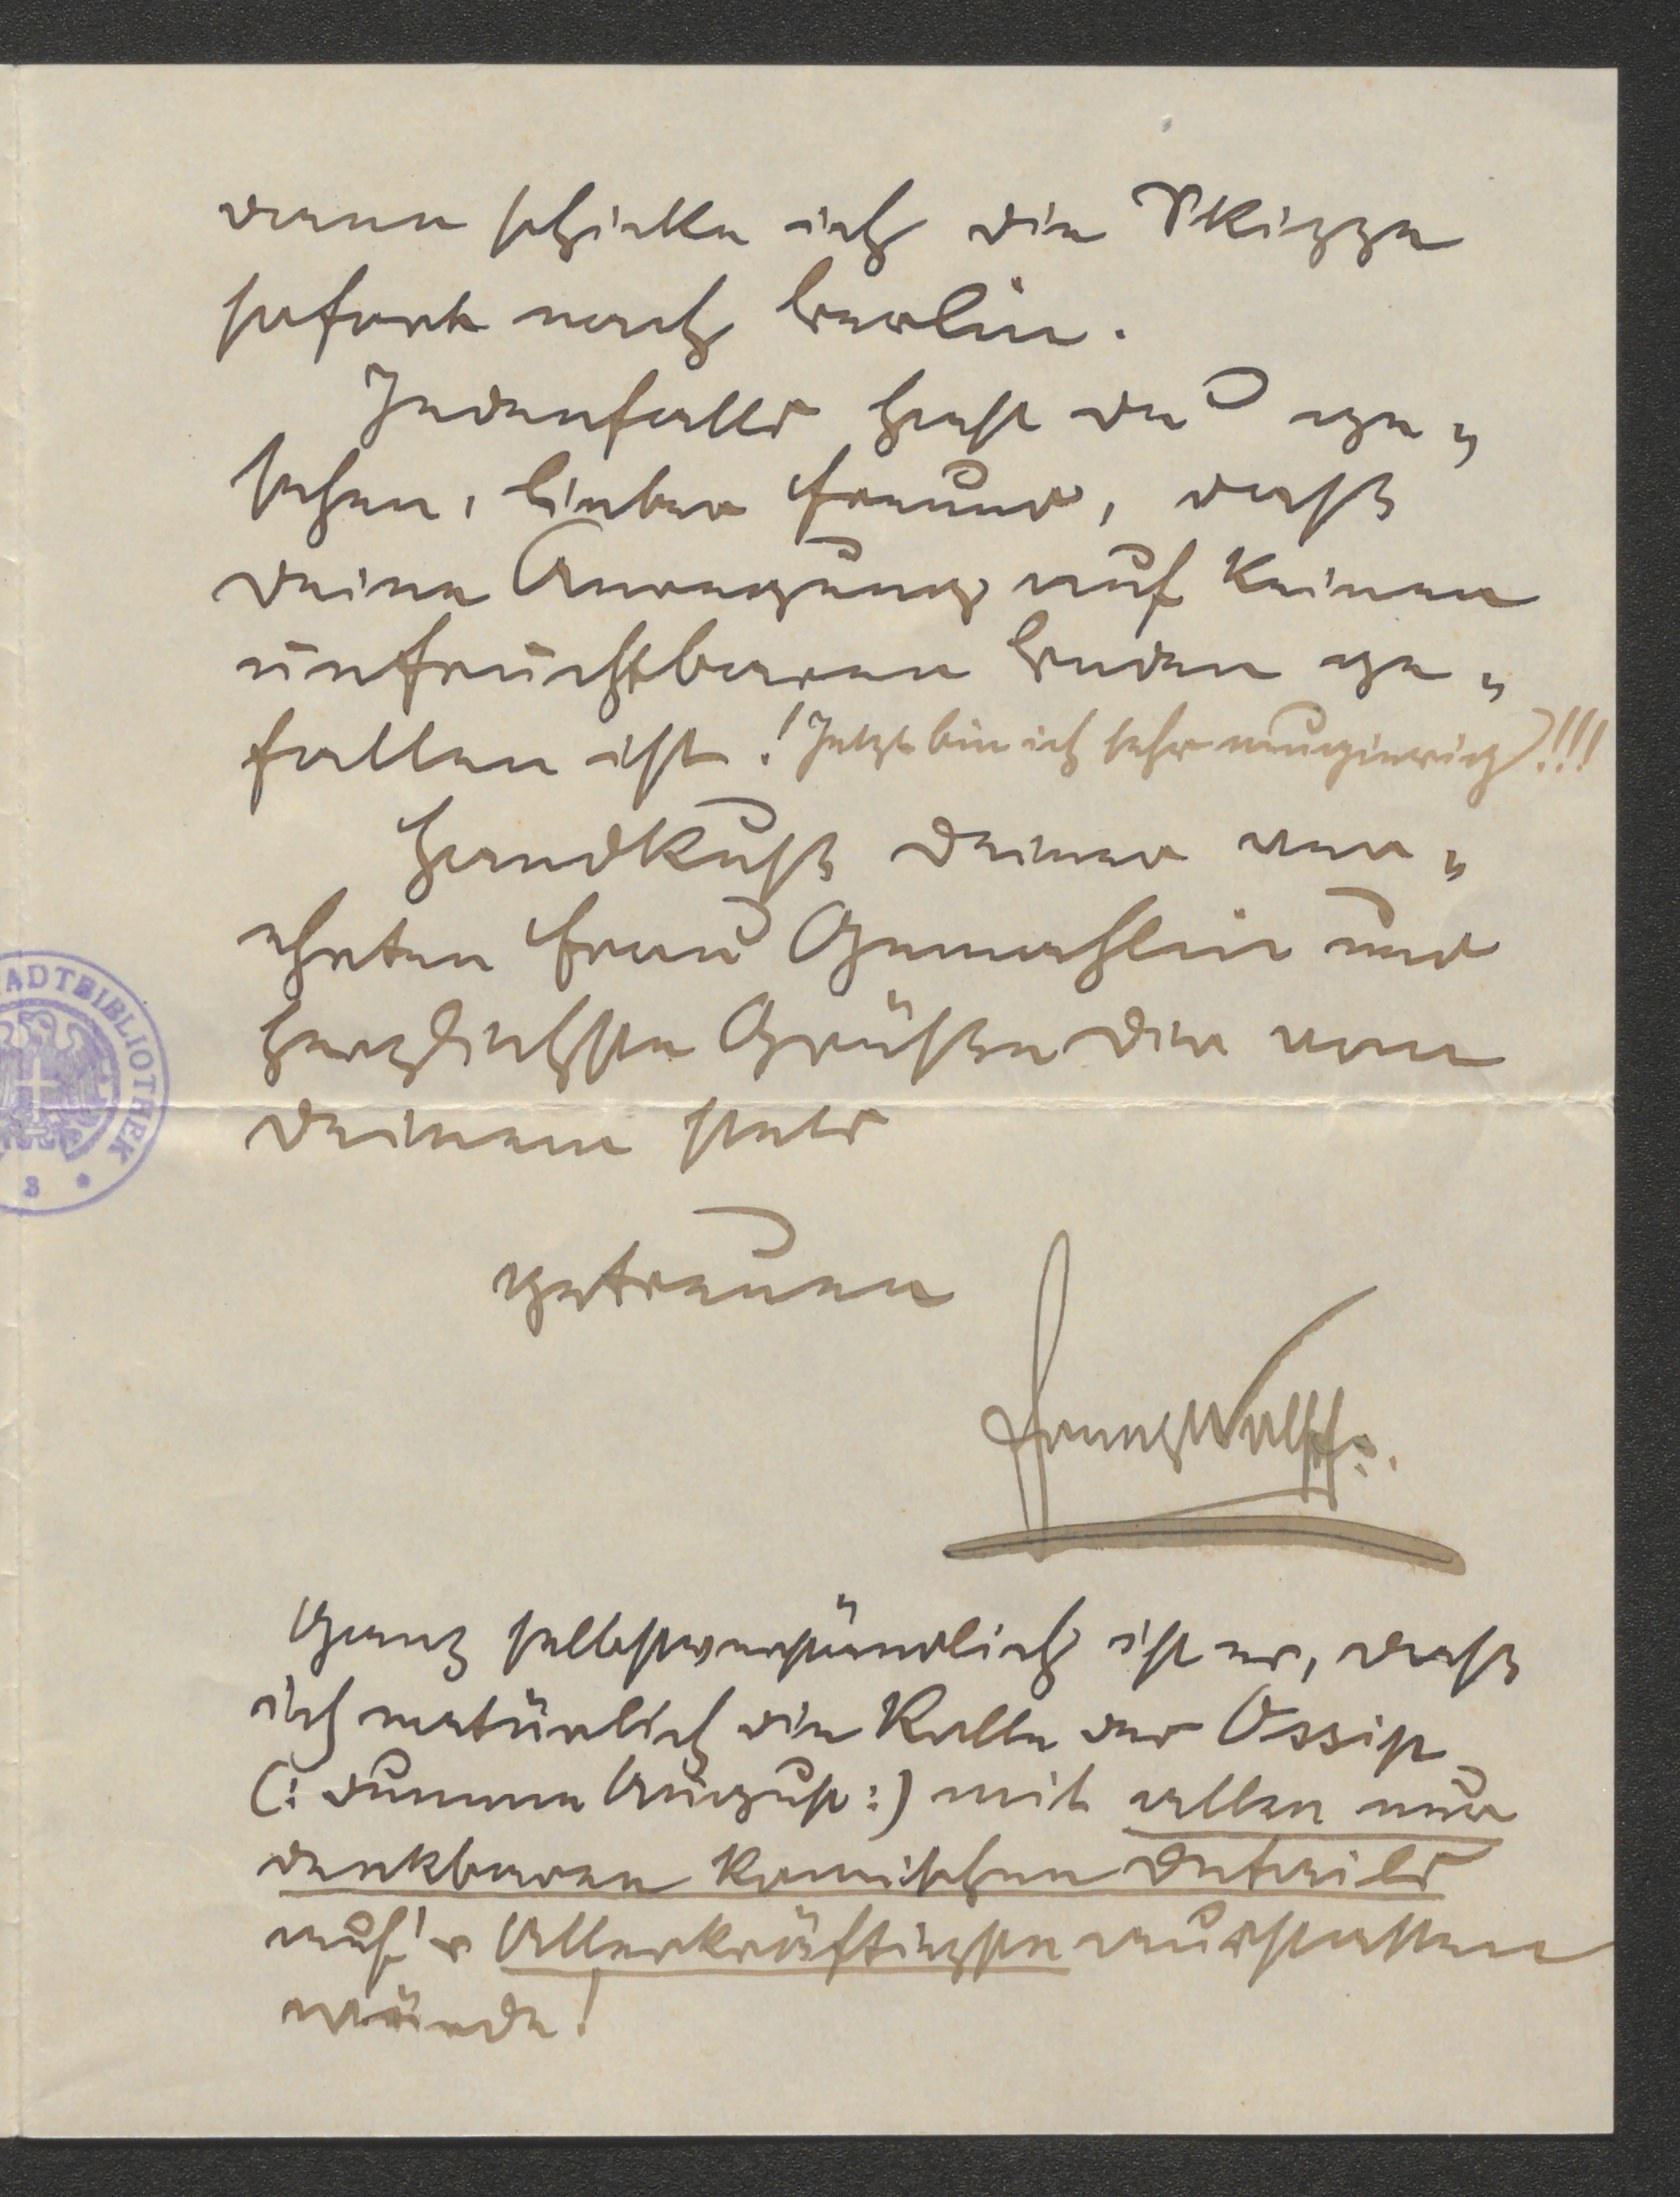 dann schicke ich die Skizze
sofort nach Berlin.
Jedenfalls hast du ge„
sehen, lieber Freund, daß
deine Anregung auf keinen
unfruchtbaren Boden ge„
fallen ist! Jetzt bin ich sehr neugierig!!!
Handkuß deiner ver„
ehrten Frau Gemahlin und
herzlichste Grüße dir von
deinem stets
getreuen
ADTBIBLIOTHEK
Ganz selbstverständlich ist es, daß
ich natürlich die Rolle des Ossip
(: dumme August :) mit allen nur
denkbaren komischen Details
auf's Allerkräftigste ausstatten
würde!